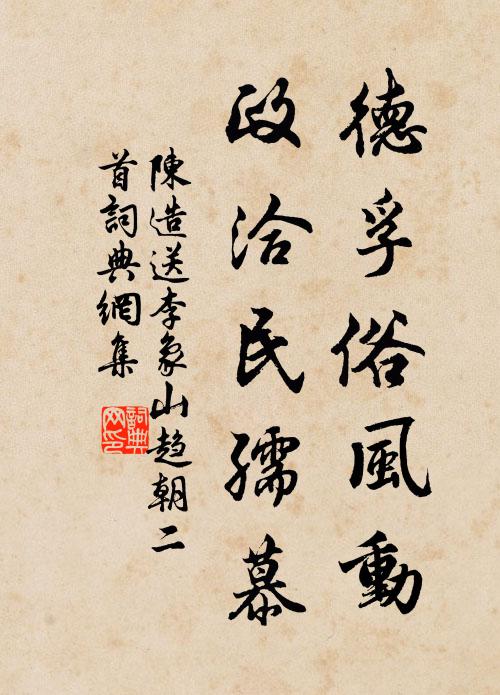 德孚俗風動
政洽民孺慕
陳造送李象山趋朝二
首詞典網集
詞典
网印